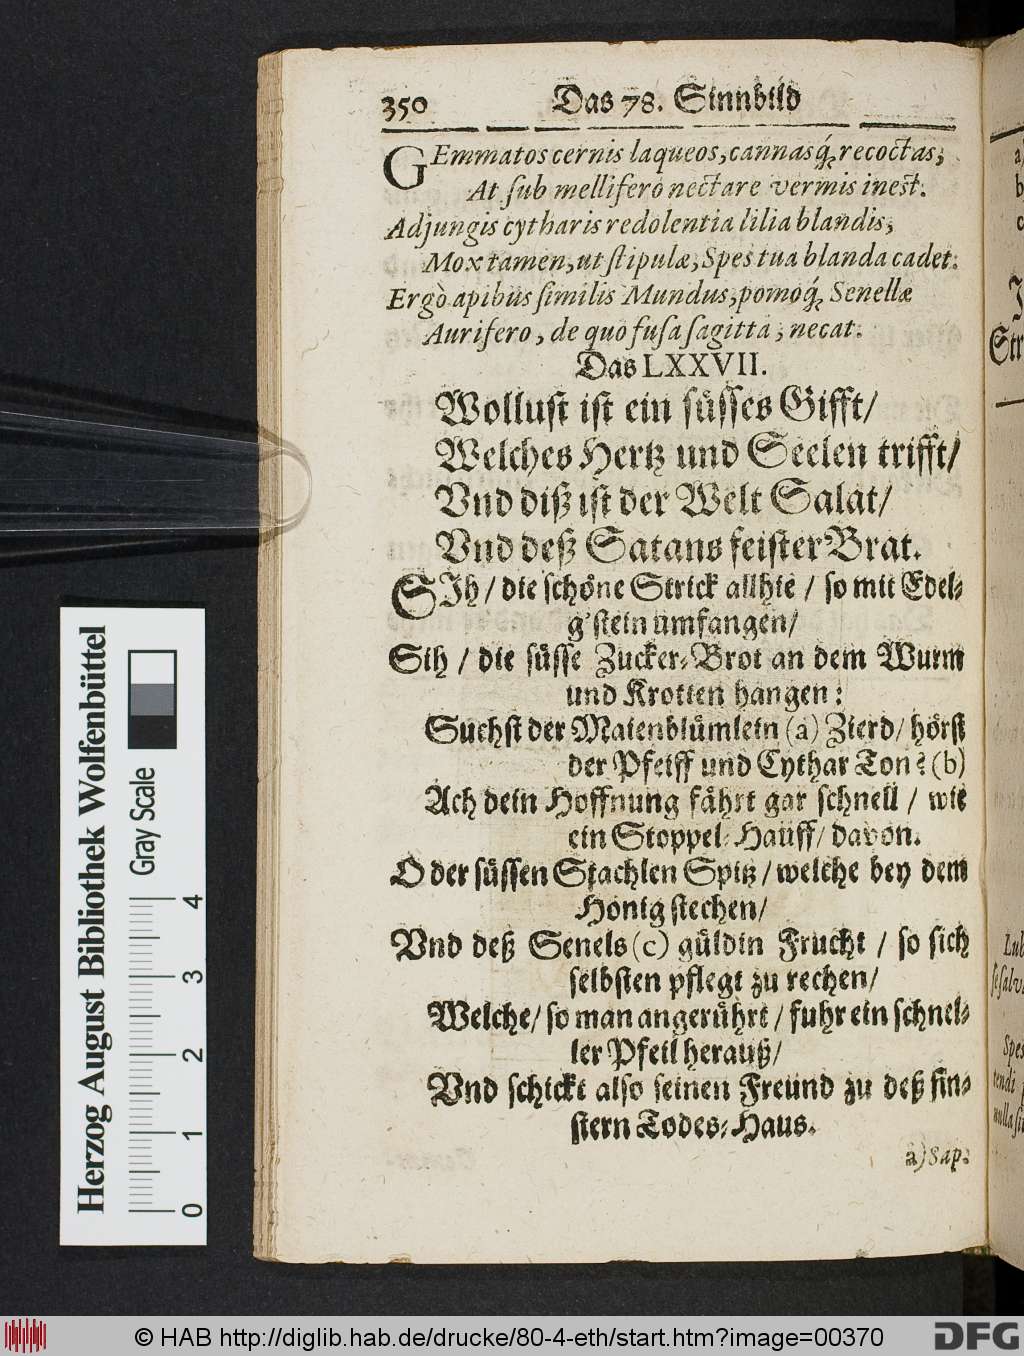 350 Das 78. Sinnbild
GEmmatos cernis laqueos, cannasq́; recoctas;
At sub mellifero nectare vermis inest.
Adjungis cytharis redolentia lilia blandis;
Mox tamen, ut stipulæ, Spes tua blanda cadet.
Ergò apibus similis Mundus, pomoq́; Senellæ
Aurifero, de quo fusa sagitta, necat.
Das LXXVII.
Wollust ist ein süsses Gifft/
Welches Hertz und Seelen trifft/
Vnd diß ist der Welt Salat/
Vnd deß Satans feister Brat.
SIh / die schöne Strick allhie / so mit Edel-
g'stein umfangen/
Sih / die süsse Zucker-Brot an dem Wurm
und Krotten hangen:
Suchst der Maienblümlein (a) Zierd/ hörst
der Pfeiff und Cythar Ton? (b)
Ach dein Hoffnung fährt gar schnell / wie
ein Stoppel-Hauff/ davon.
O der süssen Stachlen Spitz / welche bey dem
Honig stechen/
Vnd deß Senels (c) güldin Frucht / so sich
selbsten pflegt zu rechen/
Welche/ so man angerührt / fuhr ein schnel-
ler Pfeil herauß/
Vnd schickt also seinen Freund zu deß fin-
stern Todes-Haus.
a) Sap.
Herzog August Bibliothek Wolfenbüttel
Gray Scale
0 1 2 3 4
© HAB http://diglib.hab.de/drucke/80-4-eth/start.htm?image=00370
DFG